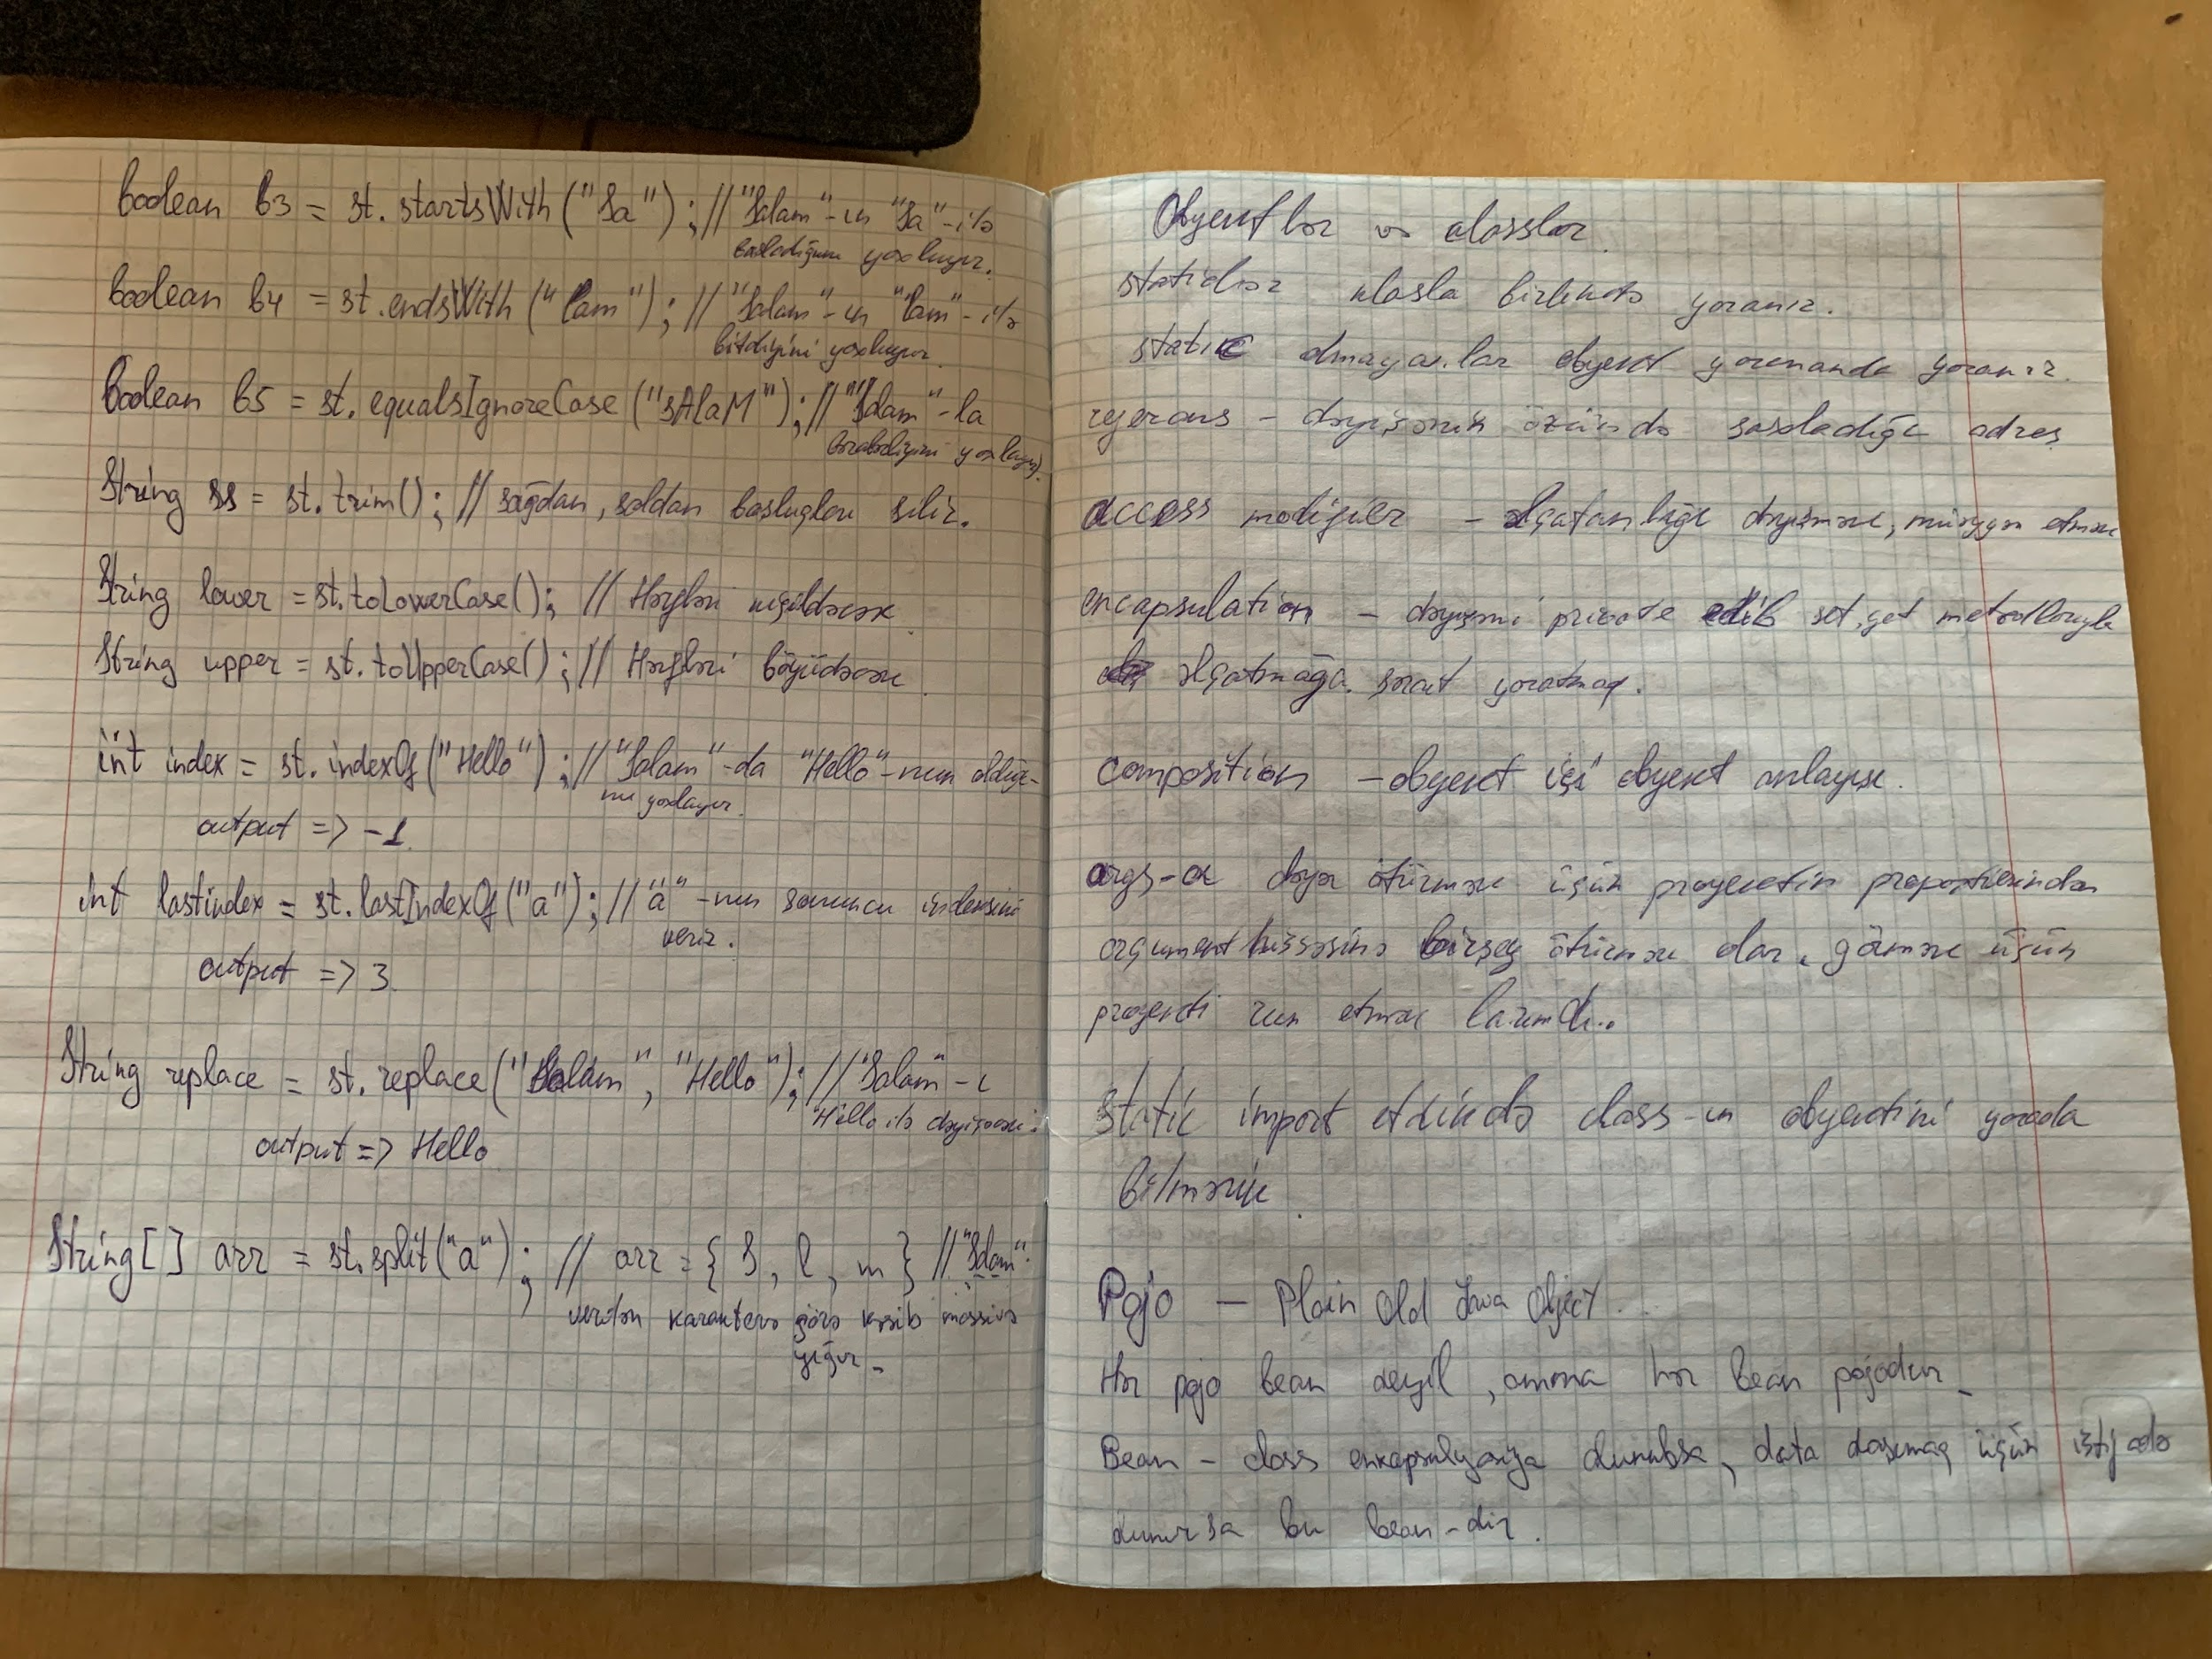 boolean b3 = st.startsWith("Sa"); // "Salam"-ın "Sa"-ilə
başladığını yoxlayır.
boolean b4 = st.endsWith("lam"); // "Salam"-ın "lam"-ilə
bitdiyini yoxlayır.
boolean b5 = st.equalsIgnoreCase("sAlaM"); // "Salam"-la
bərabərliyini yoxlayır.
String ss = st.trim(); // sağdan, soldan boşluqları silir.
String lower = st.toLowerCase(); // Hərfləri kiçildəcək.
String upper = st.toUpperCase(); // Hərfləri böyüdəcək.
int index = st.indexOf("Hello"); // "Salam"-da "Hello"-nun olduğu-
nu yoxlayır.
output => -1
int lastindex = st.lastIndexOf("a"); // "a"-nın sonuncu indeksini
verir.
output => 3
String replace = st.replace("Salam", "Hello"); // "Salam"-ı
"Hello ilə dəyişəcək.
output => Hello
String[] arr = st.split("a"); // arr = { S, l, m } // "Salam"
verilən karakterə görə kəsib massivə
yığır.
Obyektlər və klasslar.
staticlər klasla birlikdə yaranır.
static olmayanlar obyekt yarananda yaranır.
referans - dəyişənin özündə saxladığı adres
access modifier - əlçatanlığı dəyişmək, müəyyən etmək
encapsulation - dəyişəni private edib set, get metodlarıyla
əlçatmağa şərait yaratmaq.
composition - obyekt içi obyekt anlayışı.
args-a dəyər ötürmək üçün proyektin propertilərindən
argument hissəsinə birşey ötürmək olar, görmək üçün
proyekti run etmək lazımdı..
static import etdikdə class-ın obyektini yarada
bilmərik.
Pojo - Plain Old Java Object.
Hər pojo bean deyil, amma hər bean pojodur.
Bean - class enkapsulyasiya olunubsa, data daşımaq üçün istifadə
olunursa bu bean-dir.